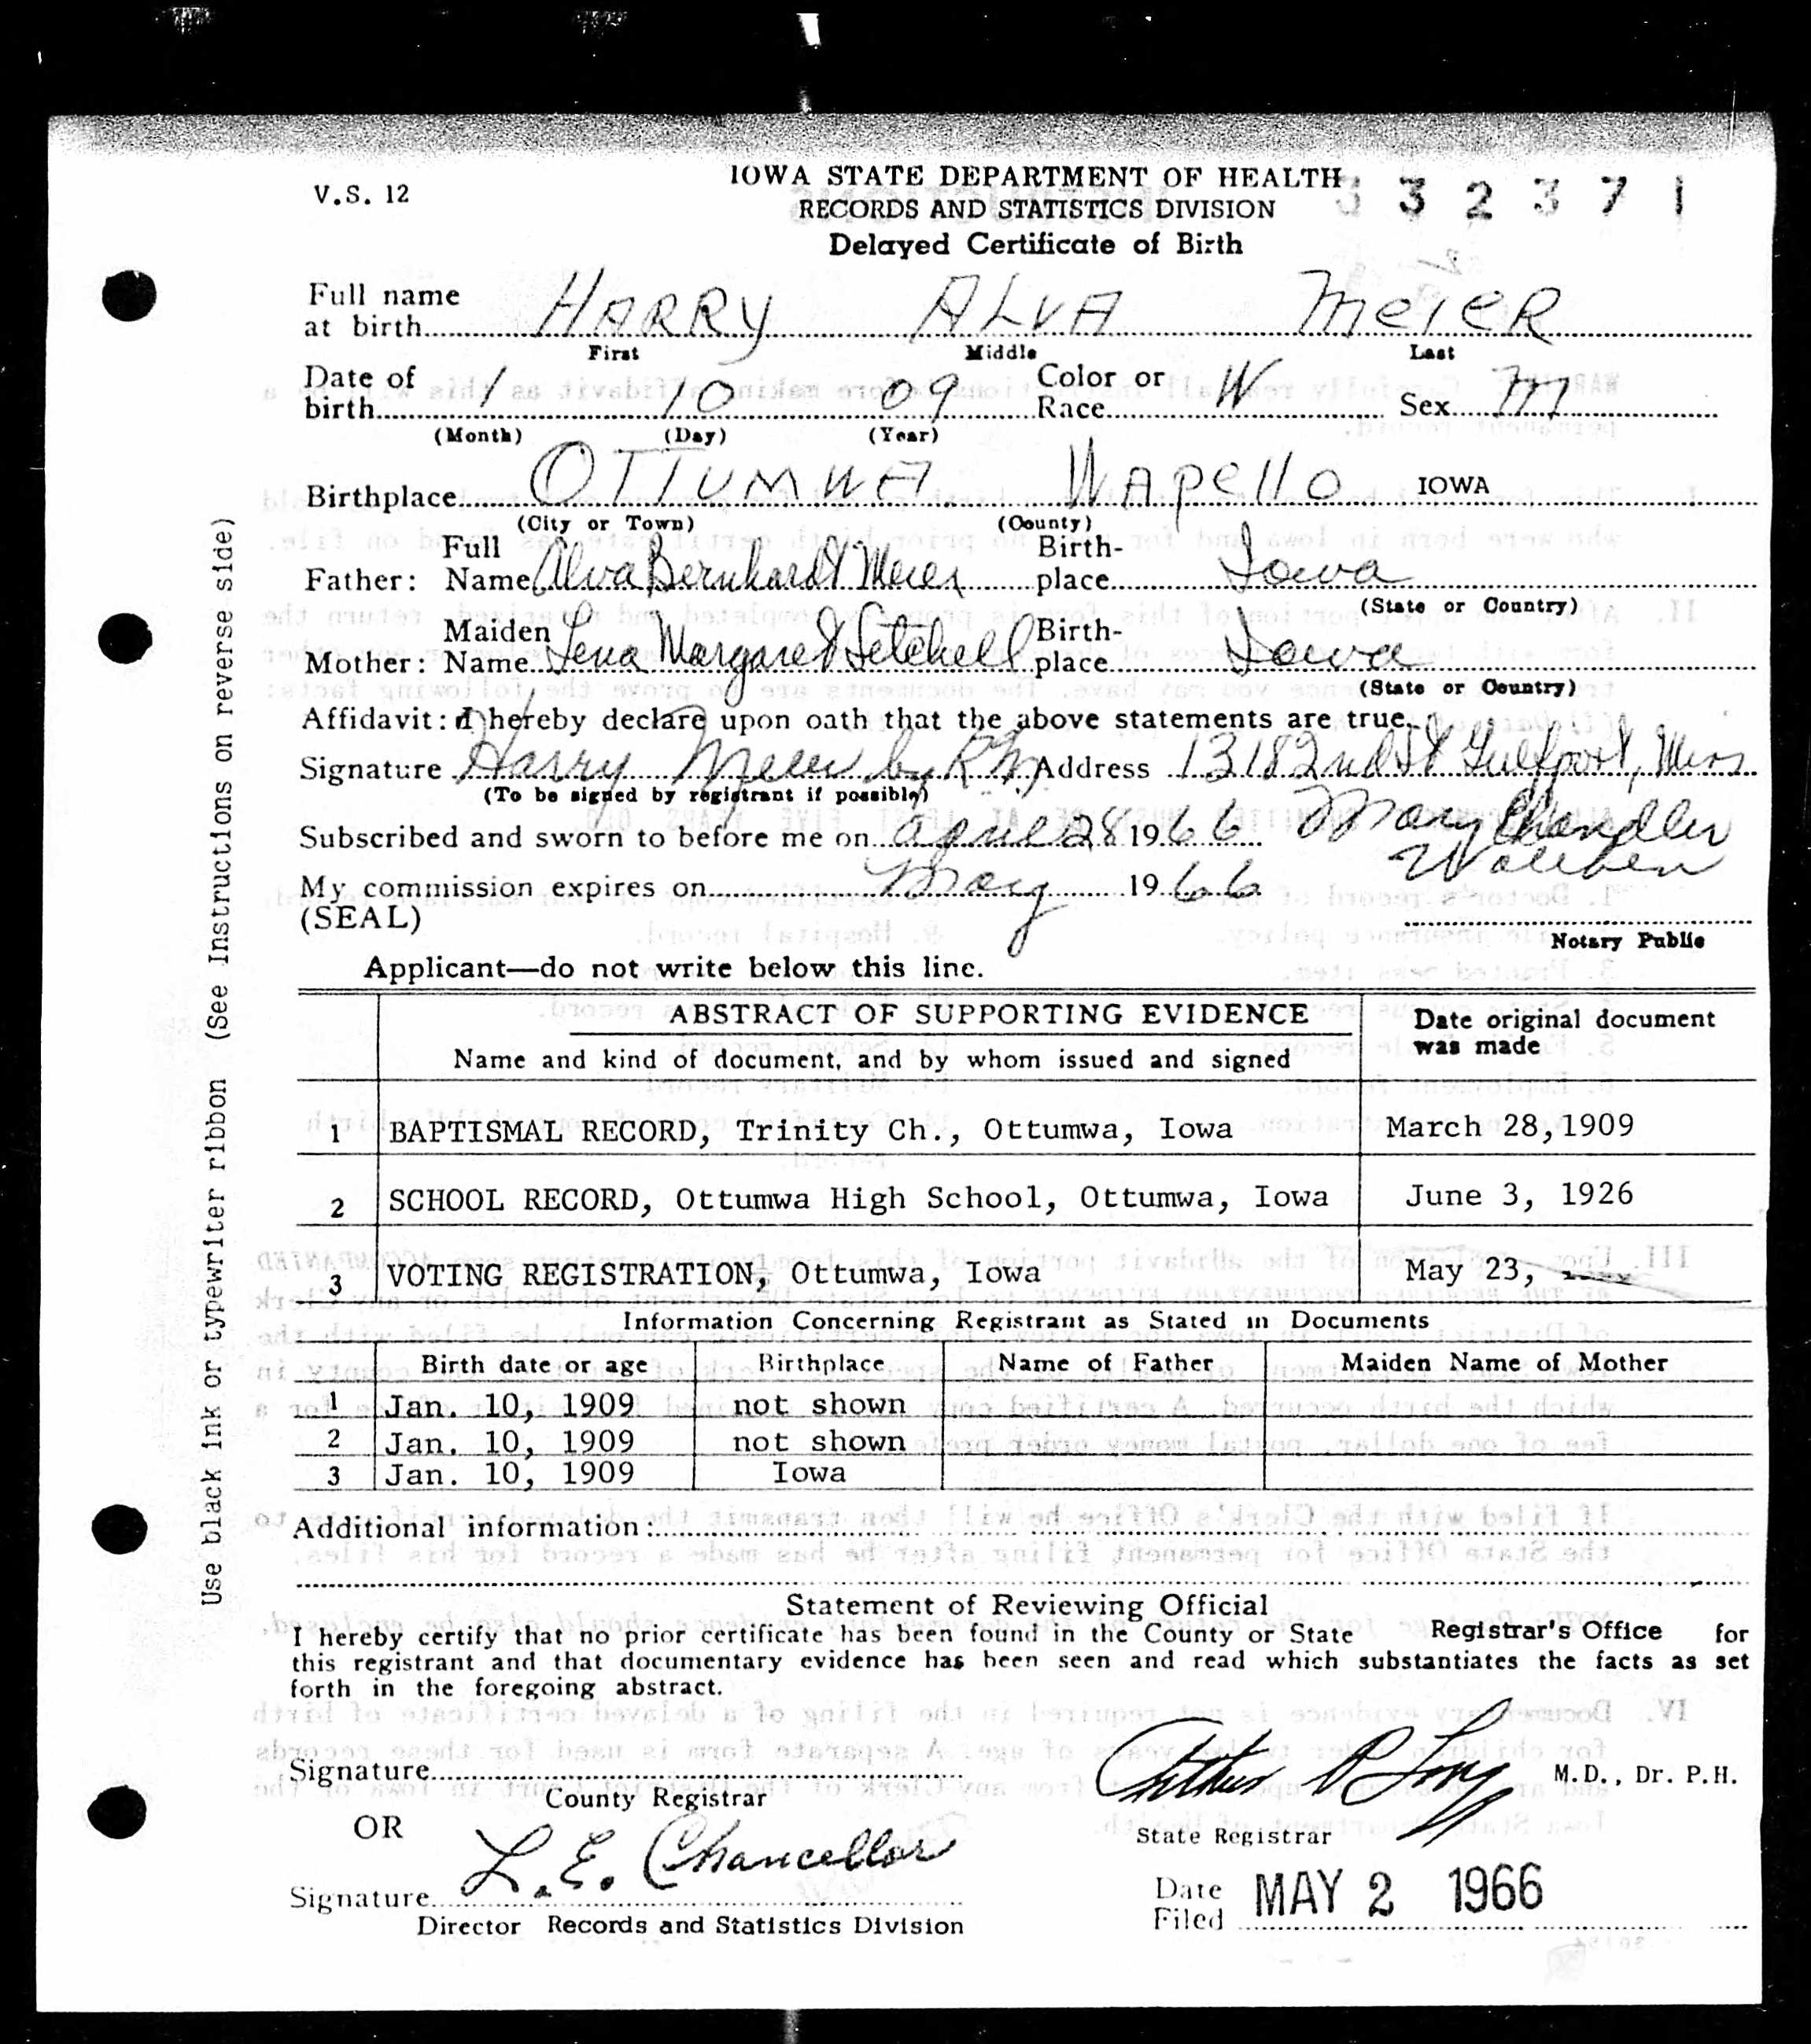 V.S. 12
IOWA STATE DEPARTMENT OF HEALTH
RECORDS AND STATISTICS DIVISION
Delayed Certificate of Birth
3 3 2 3 7 1
Full name at birth HARRY ALVA MEIER
First Middle Last
Date of birth 1 10 09 Color or Race W Sex M
(Month) (Day) (Year)
Birthplace OTTUMWA Wapello IOWA
(City or Town) (County)
Father: Full Name Alva Bernhardt Meier Birth-place Iowa
(State or Country)
Mother: Maiden Name Lena Margaret Setchell Birth-place Iowa
(State or Country)
Affidavit: I hereby declare upon oath that the above statements are true.
Signature Harry Meier by R M Address 1318 2nd St Gulfport, Miss
(To be signed by registrant if possible)
Subscribed and sworn to before me on April 28 1966 Mary Chandler
My commission expires on May 1966
(SEAL)
Notary Public
Applicant—do not write below this line.
ABSTRACT OF SUPPORTING EVIDENCE
Name and kind of document, and by whom issued and signed
Date original document was made
1 BAPTISMAL RECORD, Trinity Ch., Ottumwa, Iowa March 28,1909
2 SCHOOL RECORD, Ottumwa High School, Ottumwa, Iowa June 3, 1926
3 VOTING REGISTRATION, Ottumwa, Iowa May 23,
Information Concerning Registrant as Stated in Documents
Birth date or age Birthplace Name of Father Maiden Name of Mother
1 Jan. 10, 1909 not shown
2 Jan. 10, 1909 not shown
3 Jan. 10, 1909 Iowa
Additional information:
Statement of Reviewing Official
I hereby certify that no prior certificate has been found in the County or State Registrar's Office for
this registrant and that documentary evidence has been seen and read which substantiates the facts as set
forth in the foregoing abstract.
Signature
County Registrar
M.D., Dr. P.H.
State Registrar
OR
Signature L. E. Chancellor
Director Records and Statistics Division
Date Filed MAY 2 1966
Use black ink or typewriter ribbon (See Instructions on reverse side)